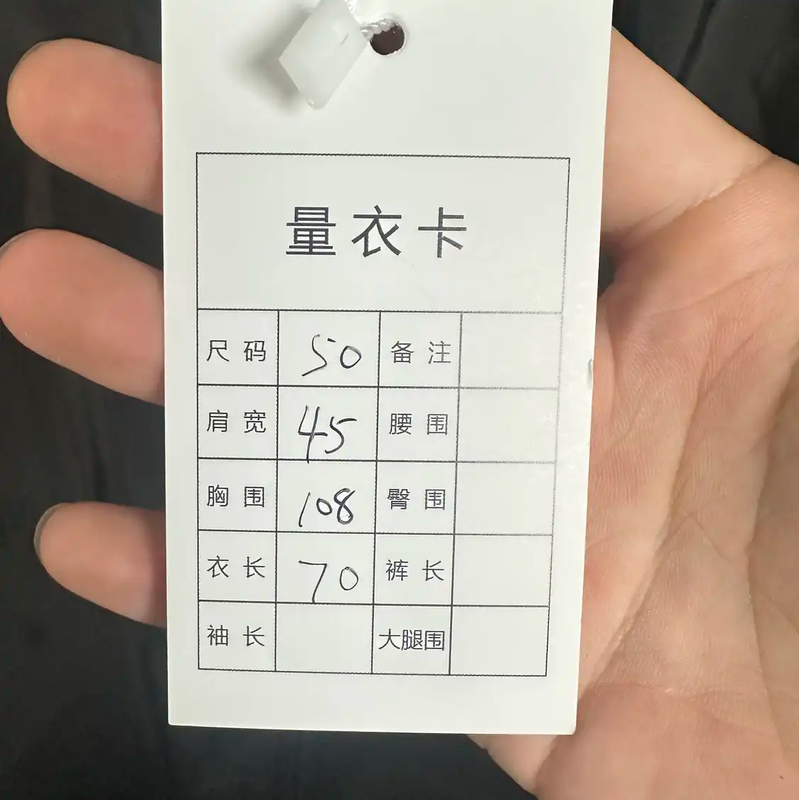 量衣卡
尺码 50 备注
肩宽 45 腰围
胸围 108 臀围
衣长 70 裤长
袖长 大腿围